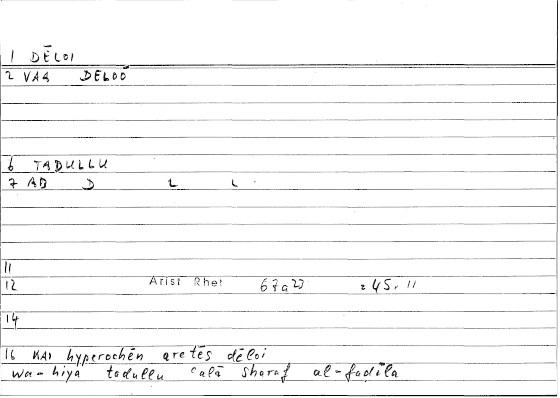 1 DĒLOI
2 VAR DĒLOŌ
6 TADULLU
7 AB D L L
11
12 Arist Rhet 67a27 =45.11
14
16 KAI hyperochēn aretēs dēloi
wa-hiya tadullu ᶜalā sharaf al-fadīla